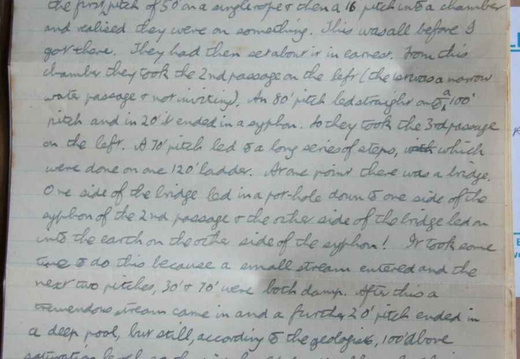 the first pitch of 50' on a single rope & then a 16' pitch into a chamber
and realised they were on something. This was all before I
got there. They had then set about it in earnest. From this
chamber they took the 2nd passage on the left (the 1st was a narrow
water passage & not inviting). An 80' pitch led straight on to a 100'
pitch and in 20' it ended in a syphon. So they took the 3rd passage
on the left. A 70' pitch led to a long series of steps, which
were done on one 120' ladder. At one point there was a bridge.
One side of the bridge led in a pot-hole down to one side of the
syphon of the 2nd passage & the other side of the bridge led on
into the earth on the other side of the syphon! It took some
time to do this because a small stream entered and the
next two pitches, 30' & 70' were both damp. After this a
tremendous stream came in and a further 20' pitch ended in
a deep pool, but still, according to the geologists, 100' above
saturation level